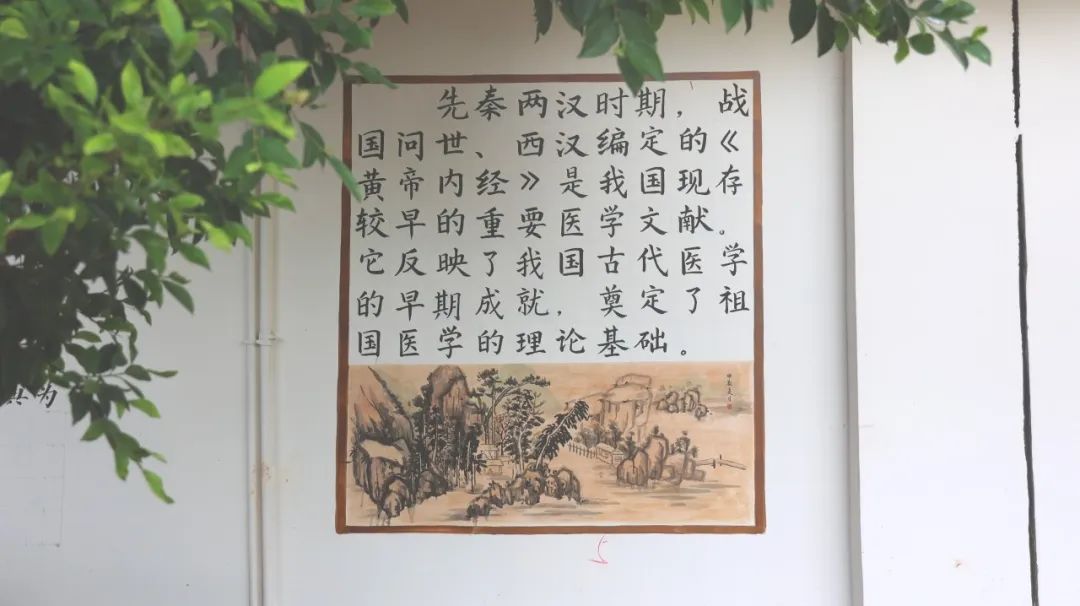 先秦两汉时期，战
国问世、西汉编定的《
黄帝内经》是我国现存
较早的重要医学文献。
它反映了我国古代医学
的早期成就，奠定了祖
国医学的理论基础。
5
为